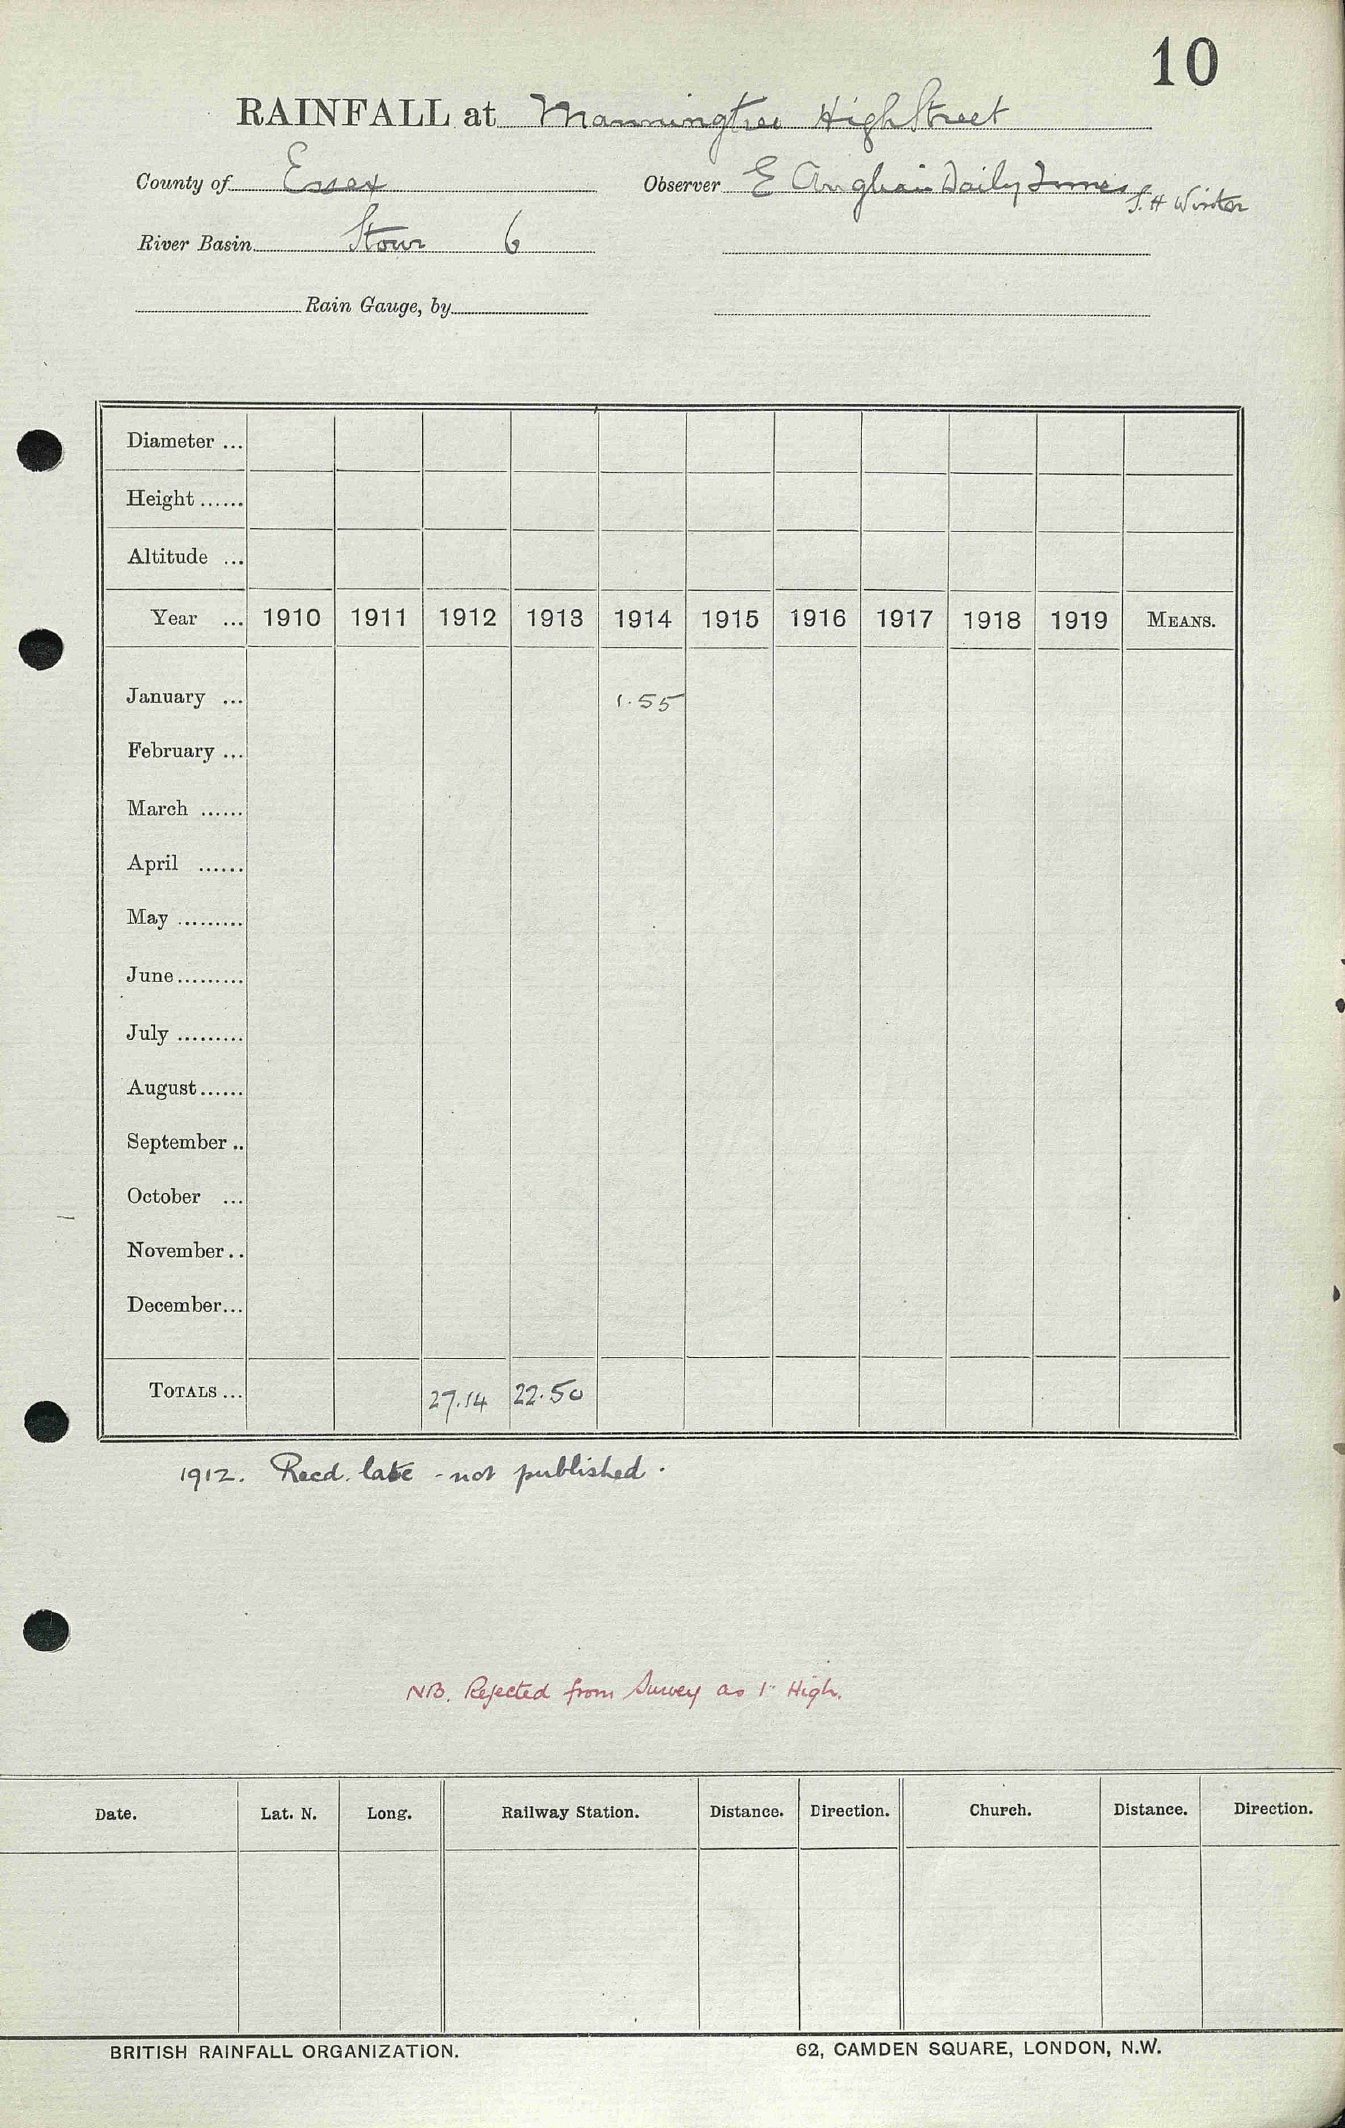 10
RAINFALL at Manningtree High Street
County of Essex Observer E Anglian Daily Times
S. H Winter
River Basin Stour 6
Rain Gauge, by
Diameter ...
Height ......
Altitude ...
Year ... 1910 1911 1912 1913 1914 1915 1916 1917 1918 1919 MEANS.
January ... 1.55
February ...
March ......
April ......
May .........
June.........
July .........
August......
September ..
October ...
November..
December...
TOTALS ... 27.14 22.50
1912. Recd. late - not published.
NB. Rejected from Survey as 1" High.
Date. Lat. N. Long. Railway Station. Distance. Direction. Church. Distance. Direction.
BRITISH RAINFALL ORGANIZATION. 62, CAMDEN SQUARE, LONDON, N.W.